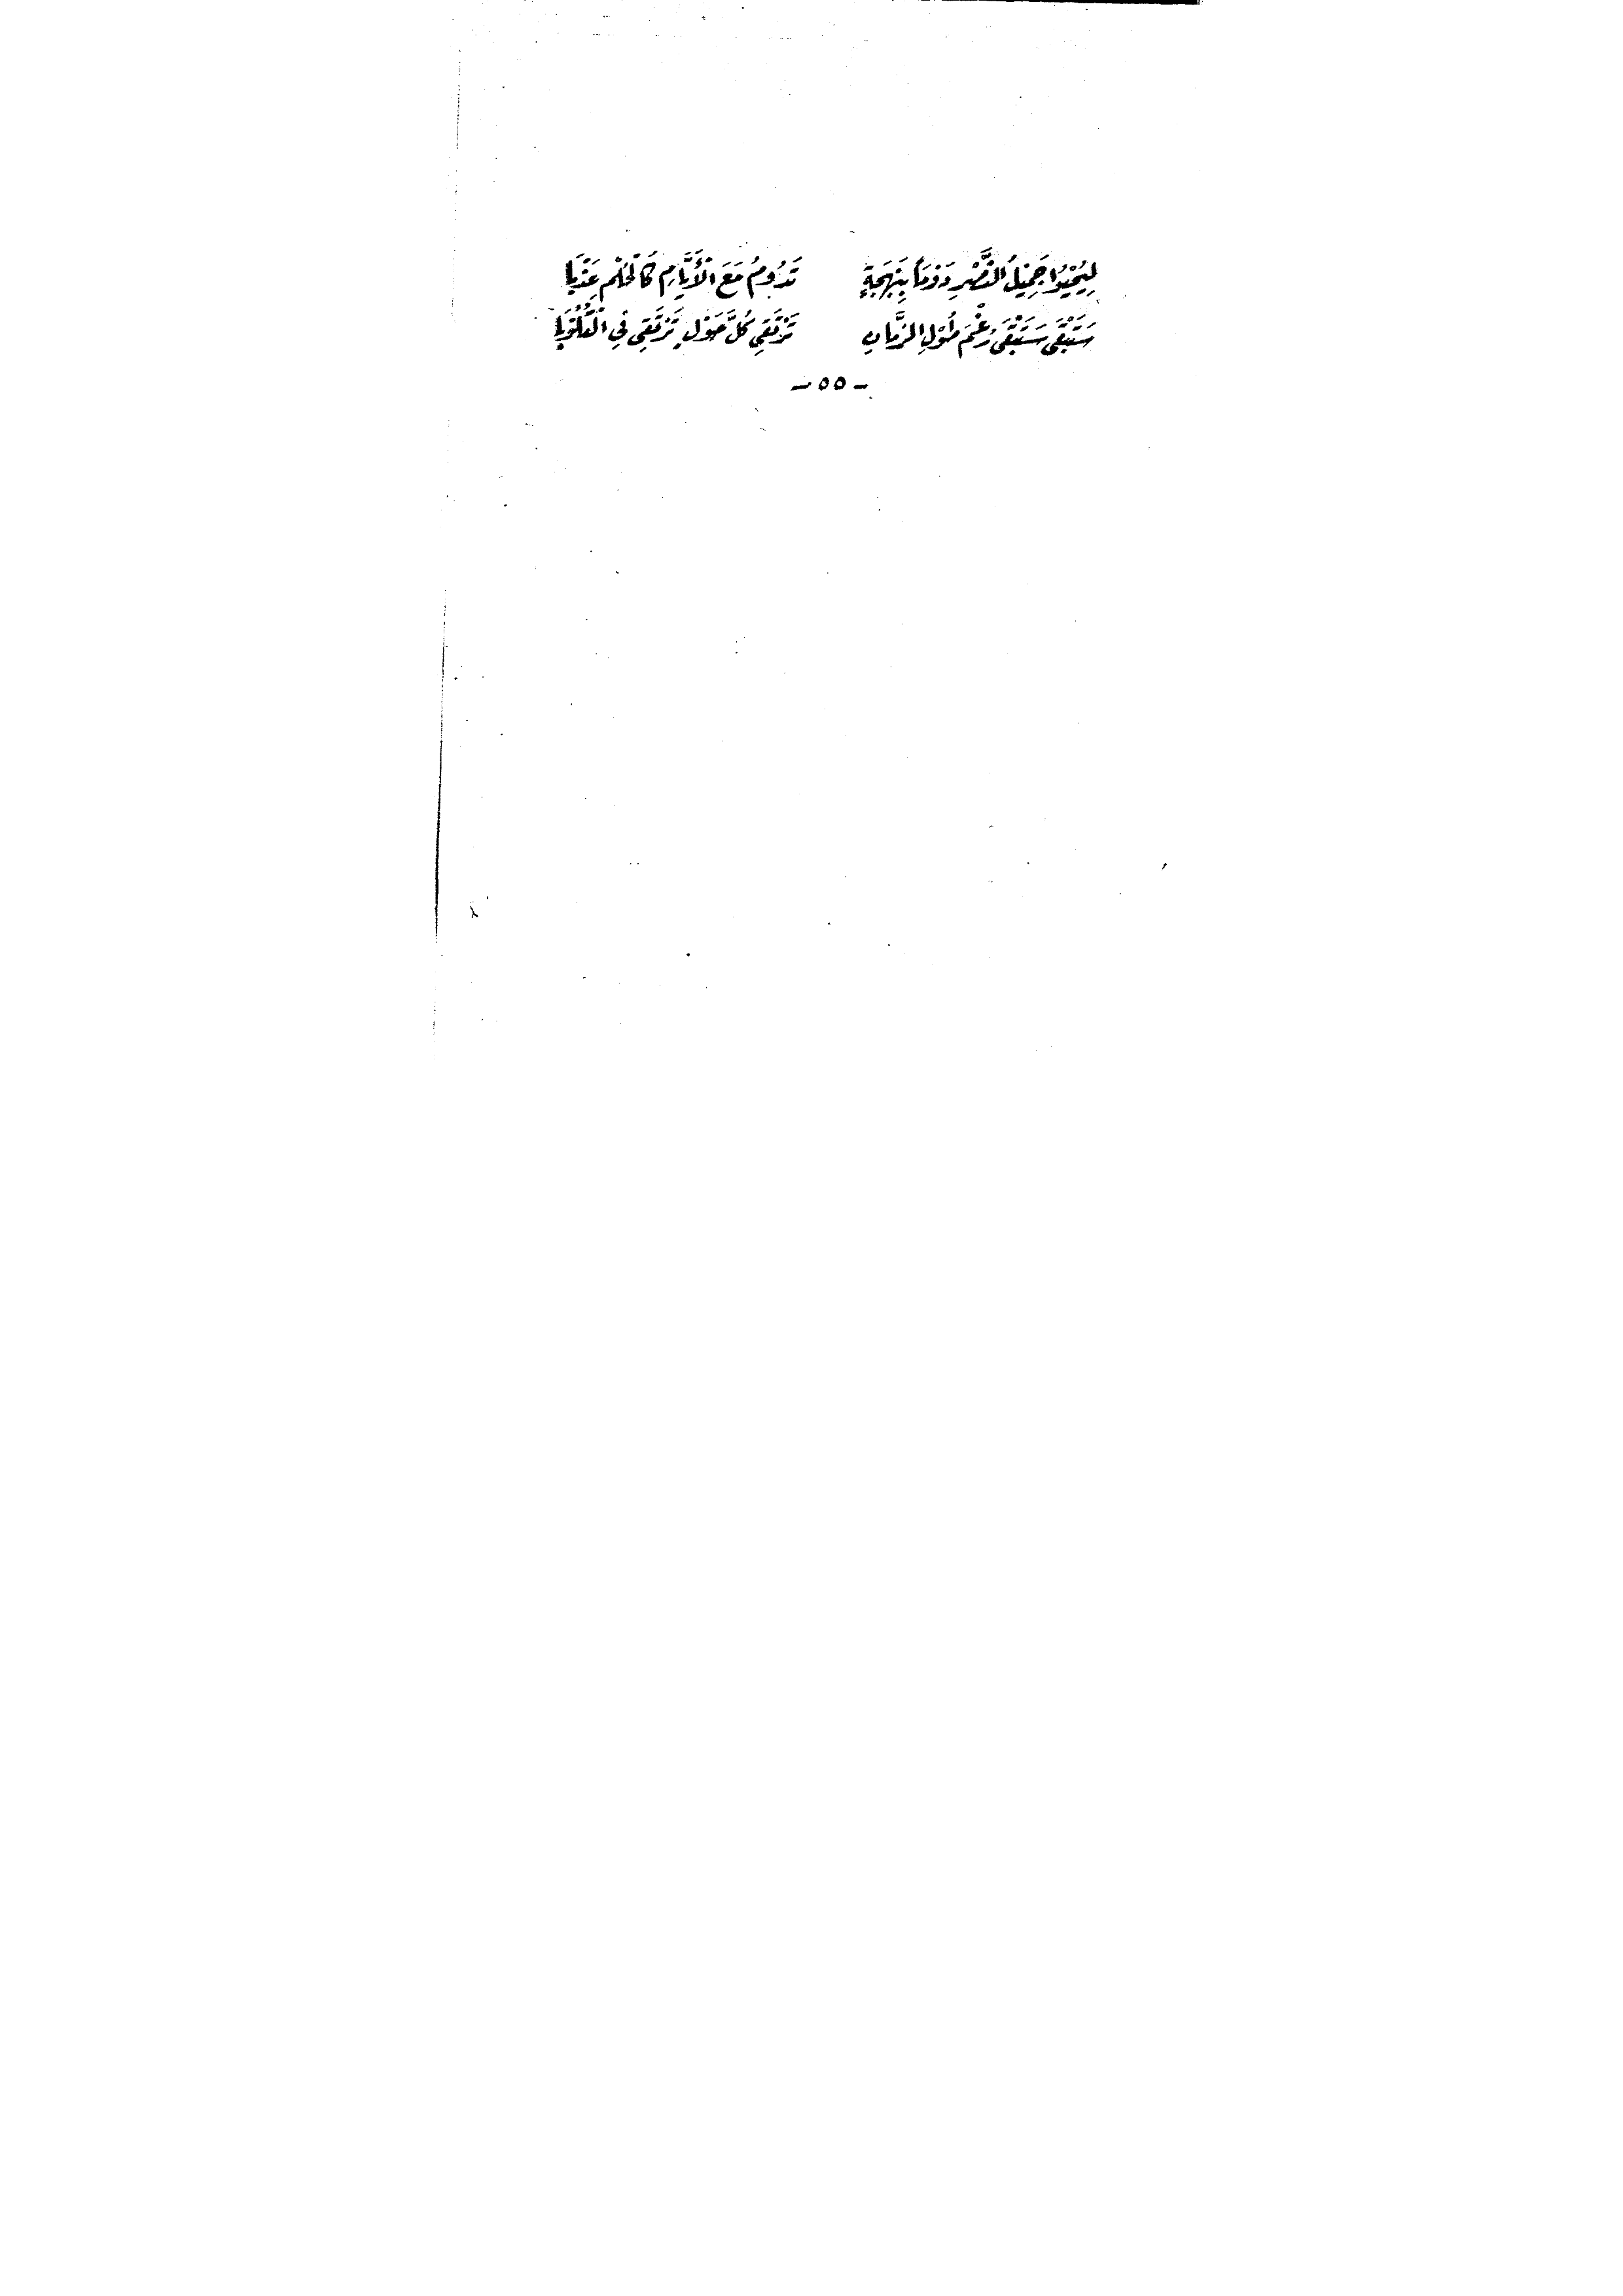 لِيُحْيُوْا جَمِيْلَ النَّصْرِ دَوْمَاً بِبَهْجَةٍ تَدُوْمُ مَعَ الْأَيَّامِ كَالْحُلْمِ عَذْبَا
سَتَبْقَى سَتَبْقَى رَغْمَ طُوْلِ الزَّمَانِ تَرْتَقِي كُلَّ حَوْلٍ تَرْتَقِي فِي الْقُلُوْبَا
- ٥٥ -